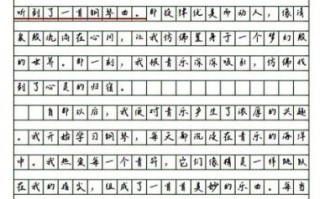 听到了一首钢琴曲。那旋律优美而动人，像清
泉般流淌在心间，让我仿佛置身于一个梦幻般
的世界。那一刻，我被音乐深深吸引，仿佛找
到了心灵的归宿。
自那以后，我便对音乐产生了浓厚的兴趣
。我开始学习钢琴，每天都沉浸在音乐的海洋
中。我热爱每一个音符，它们像精灵一样跳跃
在我的指尖，组成了一首首美妙的乐曲。每当